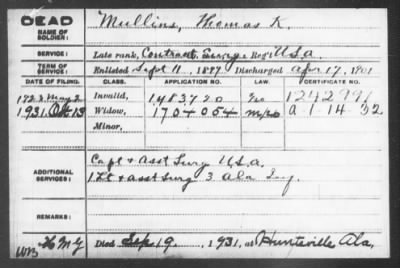 DEAD
NAME OF SOLDIER: Mullins, Thomas K.
SERVICE: Late rank, Contract Surg. Reg't U.S.A.
TERM OF SERVICE: Enlisted Sept 11, 1897, Discharged Apr. 17, 1901
DATE OF FILING. CLASS. APPLICATION NO. LAW. CERTIFICATE NO.
May 2 Invalid, 1483720 1242991
1931, Oct 13 Widow, 1704054 a-1-14-32
Minor,
ADDITIONAL SERVICES: Capt & asst Surg U.S.A.
1 Lt & asst Surg 3 Ala Inf.
REMARKS:
Died Sep 9, 1931, at Huntsville Ala,